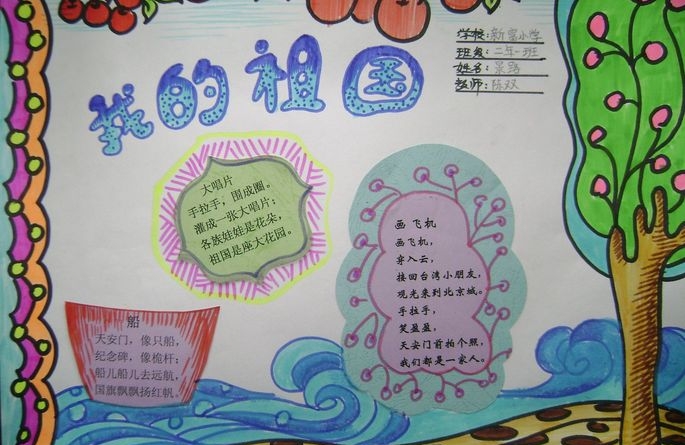 我的祖国
学校:新富小学
班级:二年一班
姓名:景路
教师:陈双
大唱片
手拉手,围成圈。
灌成一张大唱片;
各族娃娃是花朵,
祖国是座大花园。
画飞机
画飞机,
穿入云,
接回台湾小朋友,
观光来到北京城。
手拉手,
笑盈盈,
天安门首拍个照,
我们都是一家人。
船
天安门,像只船,
纪念碑,像桅杆;
船儿船儿去远航,
国旗飘飘扬红帆。